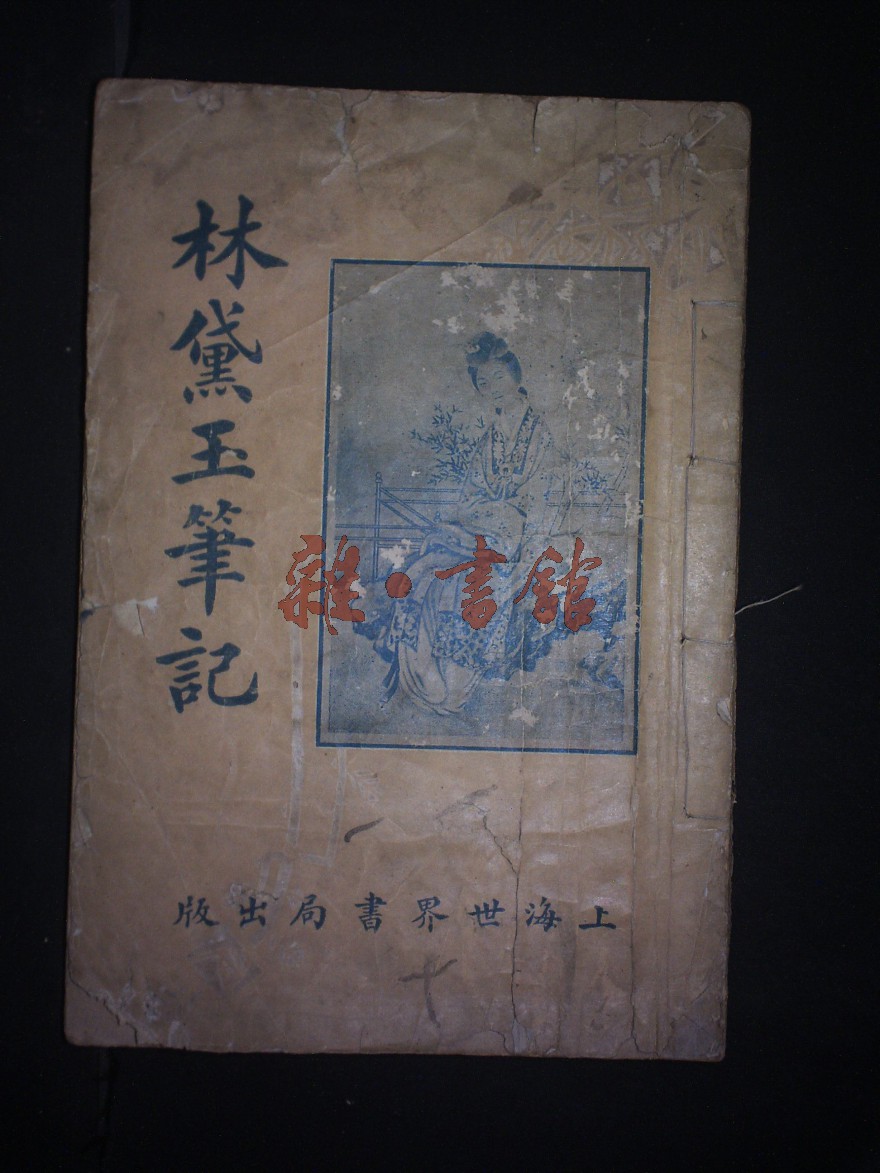 林黛玉筆記
雜·書館
上海世界書局出版
十